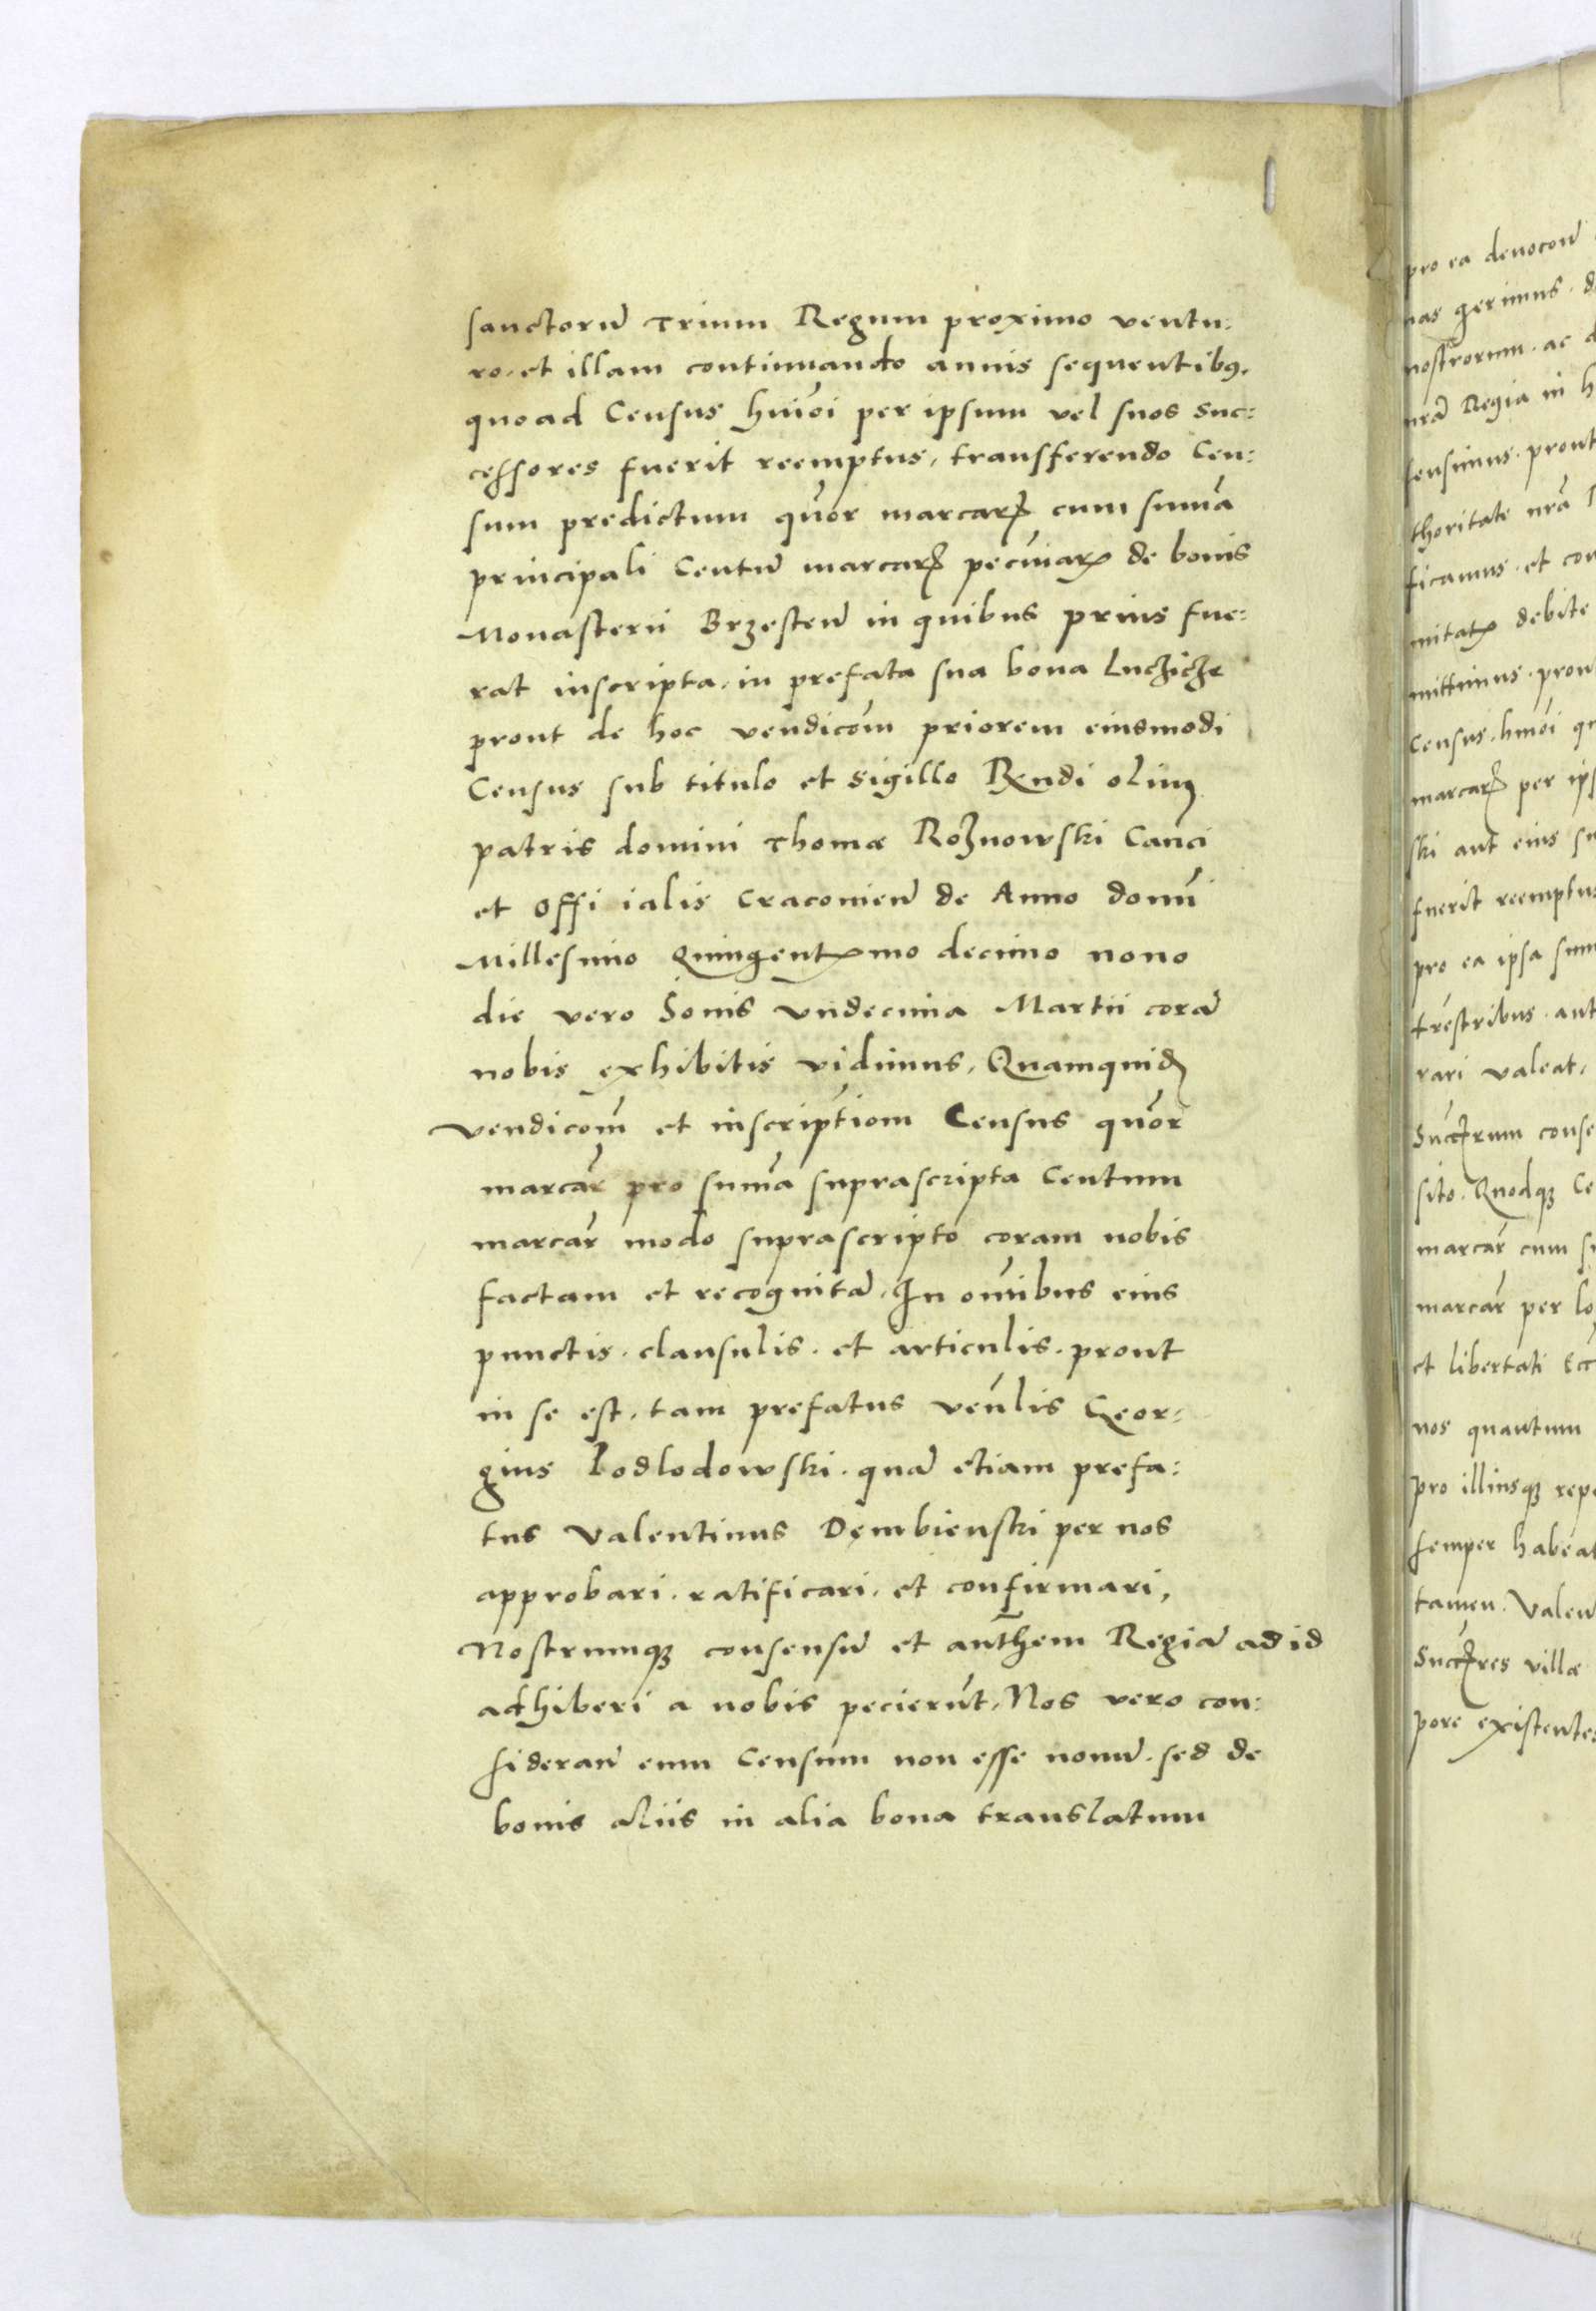 sanctorũ Trium Regum proximo ventu:
ro. et illam continuando annis sequentibꝰ.
quoad Census hmõi per ipsum vel suos suc:
cessores fuerit reemptus, transferendo Cen:
sum predictum quõr marcarꝝ cum sum̃a
principali Centũ marcarꝝ pecũiarꝝ de bonis
Monasterii Brzesteñ in quibus prius fue:
rat inscripta. in prefata sua bona Luchiche
prout de hoc vendicõm priorem eiusmodi
Census sub titulo et sigillo Rxndi olim
patris domini Thomæ Rożnowski Canci
et offi ialis Cracovieñ de Anno domĩ
Millesimo Quingentꝝmo decimo nono
die vero Sonis vndecima Martii corã
nobis exhibitis vidimus, Quamquidꝫ
vendicom̃ et inscriptiom Census quõr
marcar̃ pro sum̃a suprascripta Centum
marcar̃ modo suprascripto coram nobis
factam et recognitã, In om̃ibus eius
punctis. clausulis. et articulis. prout
in se est, tam prefatus veñlis Geor:
gius Podlodowski. quã etiam prefa:
tus Valentinus Dembienski per nos
approbari. ratificari. et confirmari,
Nostrumqꝫ consensũ et aut̃hem Regiã ad id
adhiberi a nobis pecierũt, Nos vero con:
siderañ eum Censum non esse novũ. sed de
bonis aliis in alia bona translatum

pro ea devocoñ
nas gerimus. d
nostrorum. ac d
nrã Regia in h
sensimus. prout
thoritate nrã
ficamus. et con
nitatꝝ debite
mittimus. prout
Census. hmõi qu
marcarꝝ per ips
ski aut eius su
fuerit reemptus
pro ea ipsa sum
trẽstribus. aut
rari valeat,
Succꝝrum conse
sito. Quodqꝫ Ce
marcar̃ cum su
marcar̃ per lo
et libertati Ecc
nos quantum
pro illiusqꝫ repe
semper habeat
tamen. Valen
Succꝝres villæ
pore existentes